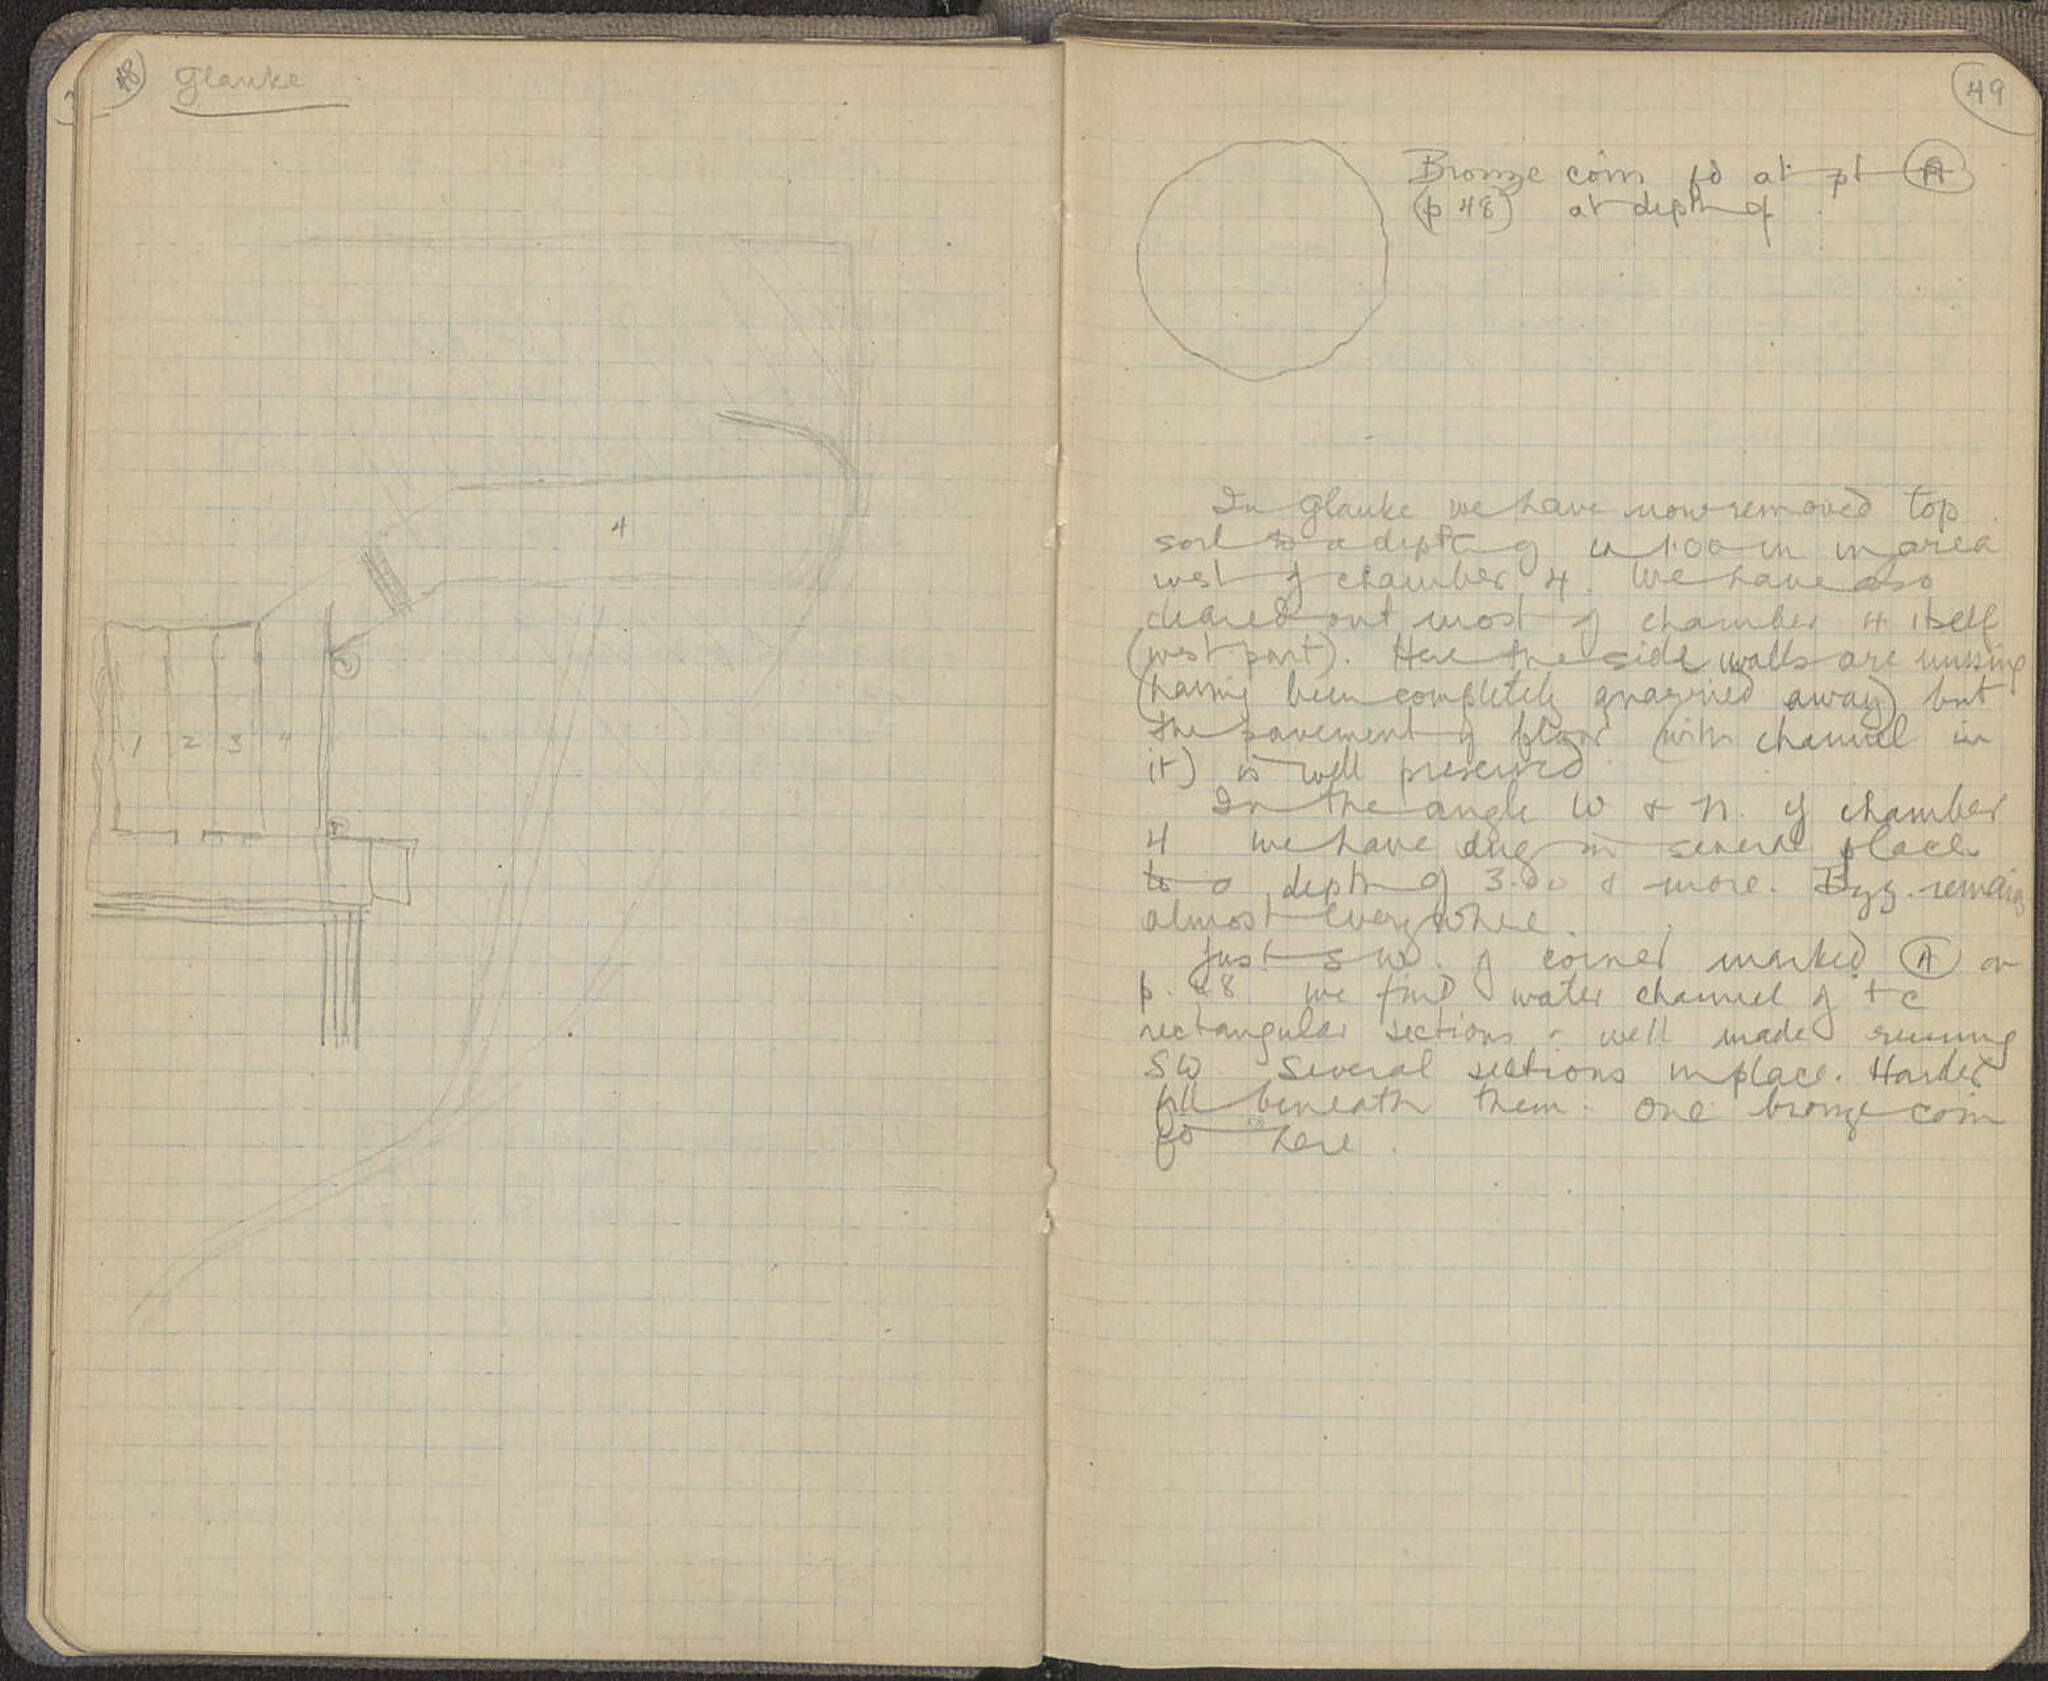 48
Glauke
4
1 2 3 4
49
Bronze coin fd at pt A
(p 48) at depth of
In Glauke we have now removed top
soil to a depth of ca 1.00 m in area
west of chamber 4. We have also
cleared out most of chamber 4 itself
(west part). Here the side walls are missing
(having been completely quarried away) but
the pavement of floor (with channel in
it) is well preserved
In the angle W & N. of chamber
4 we have dug in several places
to a depth of 3.00 & more. Byz. remains
almost everywhere.
Just SW. of corner marked A on
p. 48 we find water channel of t c
rectangular sections - well made running
SW Several sections in place. Harder
fill beneath them. One bronze coin
fd here.